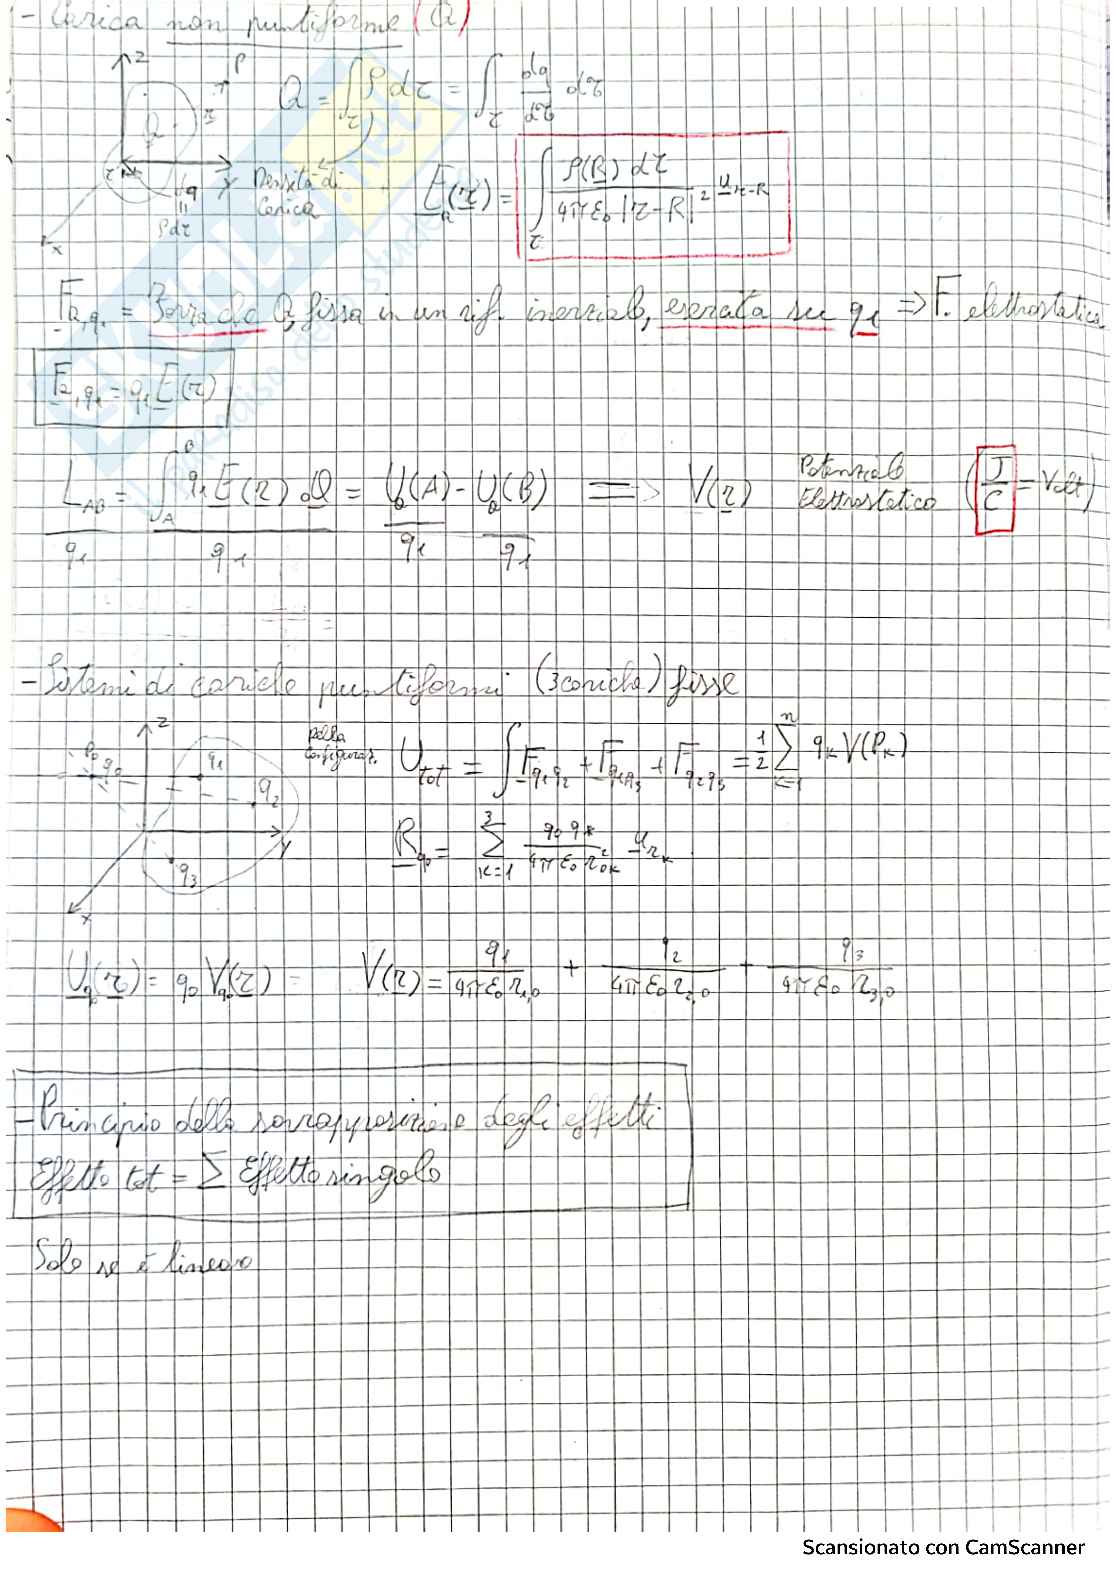 - Carica non puntiforme (Q)
z P
Q = ∫_τ ρ dτ = ∫_τ dq/dτ dτ
Q r
τ y dq = ρdτ x
Densità di Carica
E_Q(r) = ∫_τ ρ(R) dτ / 4πε₀ |r-R|² u_r-R
F_Q,q₁ = Forza da Q, fissa in un rif. inerziale, esercitata su q₁ => F. elettrostatica
F_Q,q₁ = q₁ E(r)
L_AB/q₁ = ∫_A^B q₁ E(r) · dl / q₁ = U_Q(A)/q₁ - U_Q(B)/q₁ ==> V(r) Potenziale Elettrostatico (J/C = Volt)
- Sistemi di cariche puntiformi (3 cariche) fisse
z P₀ q₀ q₁ q₂ q₃ y x
Della Configuraz. U_tot = ∫ F_q₁q₂ + F_q₁q₃ + F_q₂q₃ = 1/2 Σ_{k=1}^{n} q_k V(P_k)
R_q₀ = Σ_{k=1}^{3} q₀ q_k / 4πε₀ r²_0k u_r_k
U_q₀(r) = q₀ V_q₀(r) = V(r) = q₁/4πε₀ r₁,₀ + q₂/4πε₀ r₂,₀ + q₃/4πε₀ r₃,₀
- Principio della sovrapposizione degli effetti
Effetto tot = Σ Effetto singolo
Solo se è lineare
Scansionato con CamScanner